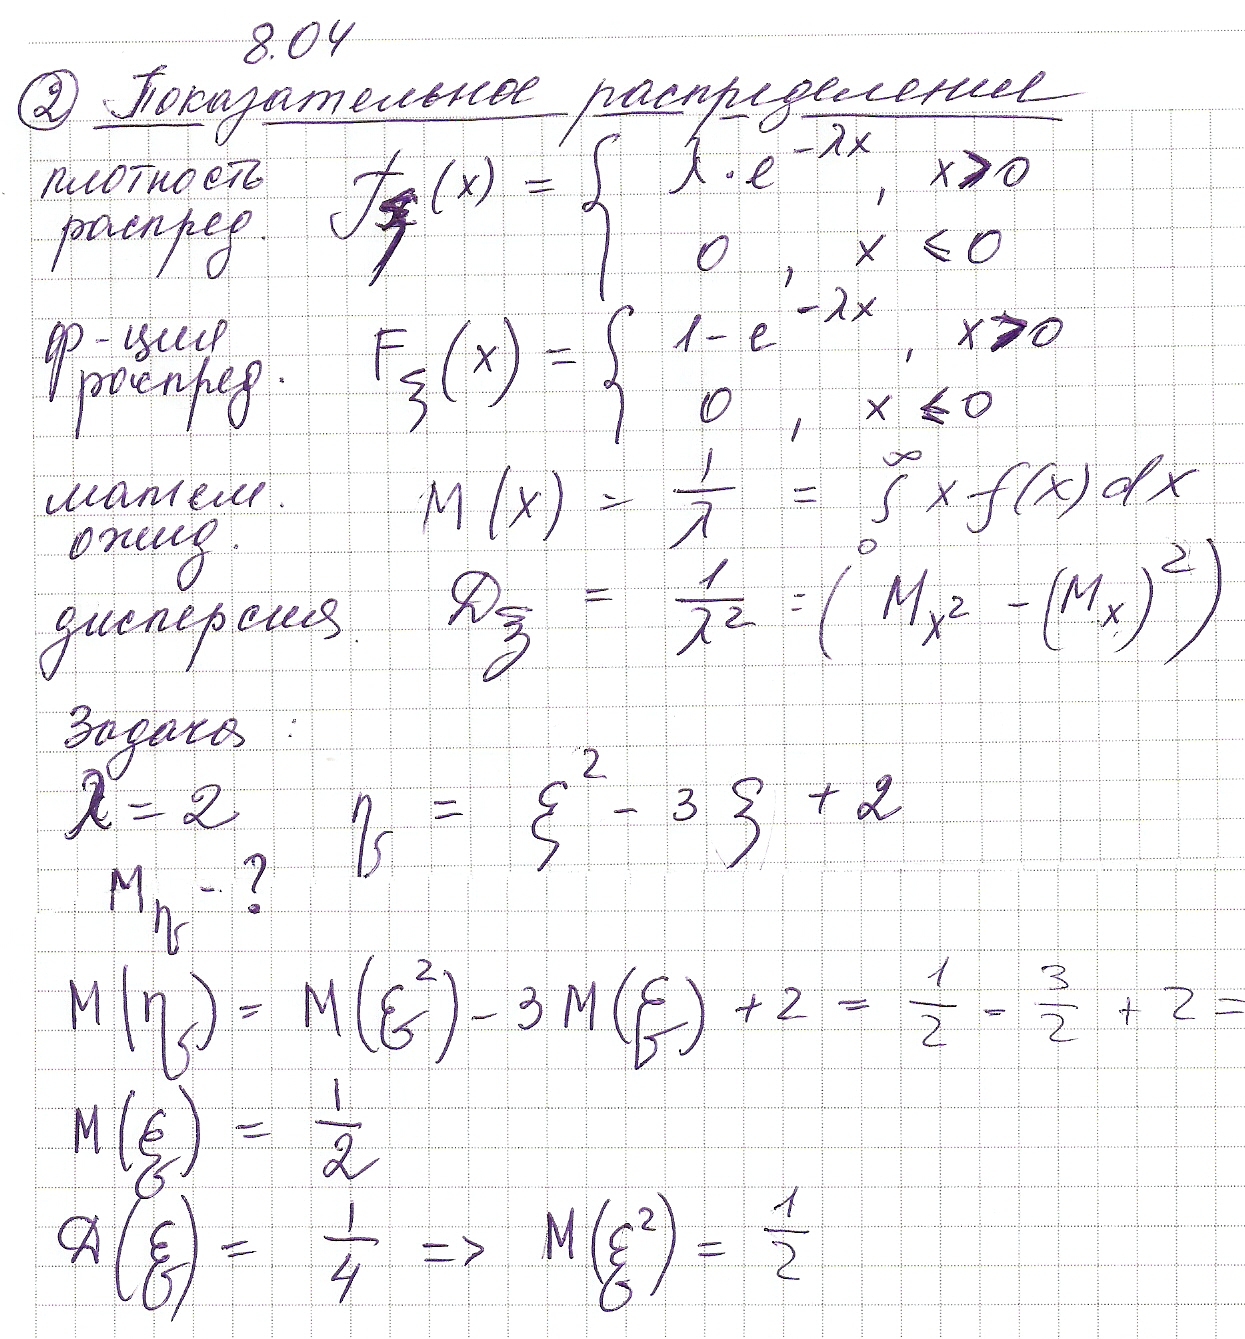 8.04
② Показательное распределение
плотность распред. f_ξ(x) = { λ·e^{-λx}, x>0
0, x ≤ 0
ф-ция распред. F_ξ(x) = { 1-e^{-λx}, x>0
0, x ≤ 0
матем. ожид. M(x) = 1/λ = ∫_0^∞ x f(x) dx
дисперсия. Д_ξ = 1/λ² = (M_{x²} - (M_x)²)
Задача:
λ = 2 η = ξ² - 3ξ + 2
M_η - ?
M(η) = M(ξ²) - 3M(ξ) + 2 = 1/2 - 3/2 + 2 =
M(ξ) = 1/2
Д(ξ) = 1/4 => M(ξ²) = 1/2